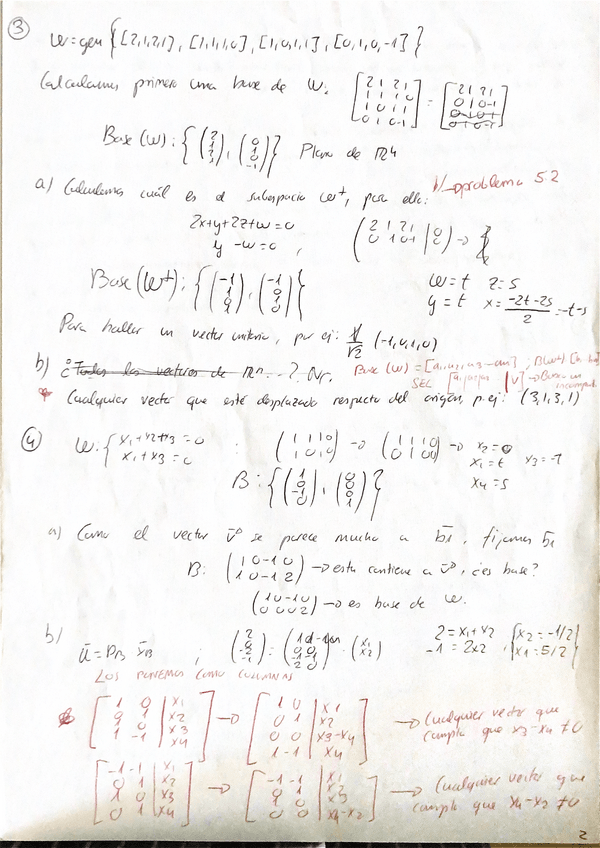 ③ W=gen {[2,1,2,1], [1,1,1,0], [1,0,1,1], [0,1,0,-1]}
Calculamos primero una base de W. [2 1 2 1; 1 1 1 0; 1 0 1 1; 0 1 0 -1] = [2 1 2 1; 0 1 0 -1;
Base (W): { (2 1 2 1), (0 1 0 -1) } Plano de R4
a) Calculemos cuál es el subespacio W⊥, para ello: b/→problema 52
2x+y+2z+w=0
y -w=0 , (2 1 2 1 | 0; 0 1 0 -1 | 0) →
Base (W⊥): { (-1 1 0 1), (-1 0 1 0) } w=t z=s
y=t x= -2t-2s / 2 = -t-s
Para hallar un vector unitario, por ej: 1/√2 (-1,0,1,0)
b) ¿Todos los vectores de Rⁿ...? No. Base (W) =
SEL
Cualquier vector que esté desplazado respecto del origen, p.ej: (3,1,3,1)
④ W: { x1+x2+x3=0
x1+x3=0 : (1 1 1 0; 1 0 1 0) → (1 1 1 0; 0 1 0 0) → x2=0
x1=t x3=-t
x4=s
B: { (1 0 -1 0), (0 0 0 1) }
a) Como el vector v̄ se parece mucho a b̄1, fijamos b̄1
B: (1 0 -1 0; 1 0 -1 2) → esta contiene a v̄, ¿es base?
(1 0 -1 0; 0 0 0 2) → es base de W.
b/ ū = PB x̄B ; (2 0 -2 -1) = · (x1 x2) 2=x1+x2
-1=2x2 { x2=-1/2
x1=5/2 }
LOS PONEMOS COMO COLUMNAS
[1 0 | x1; 0 1 | x2; 1 0 | x3; 1 -1 | x4] → [1 0 | x1; 0 1 | x2; 0 0 | x3-x4; 1 -1 | x4] → Cualquier vector que
cumpla que x3-x4≠0
[-1 -1 | x1; 0 1 | x2; 1 0 | x3; 0 1 | x4] → [-1 -1 | x1; 0 1 | x2; 1 0 | x3; 0 0 | x4-x2] → Cualquier vector que
cumpla que x4-x2≠0
2